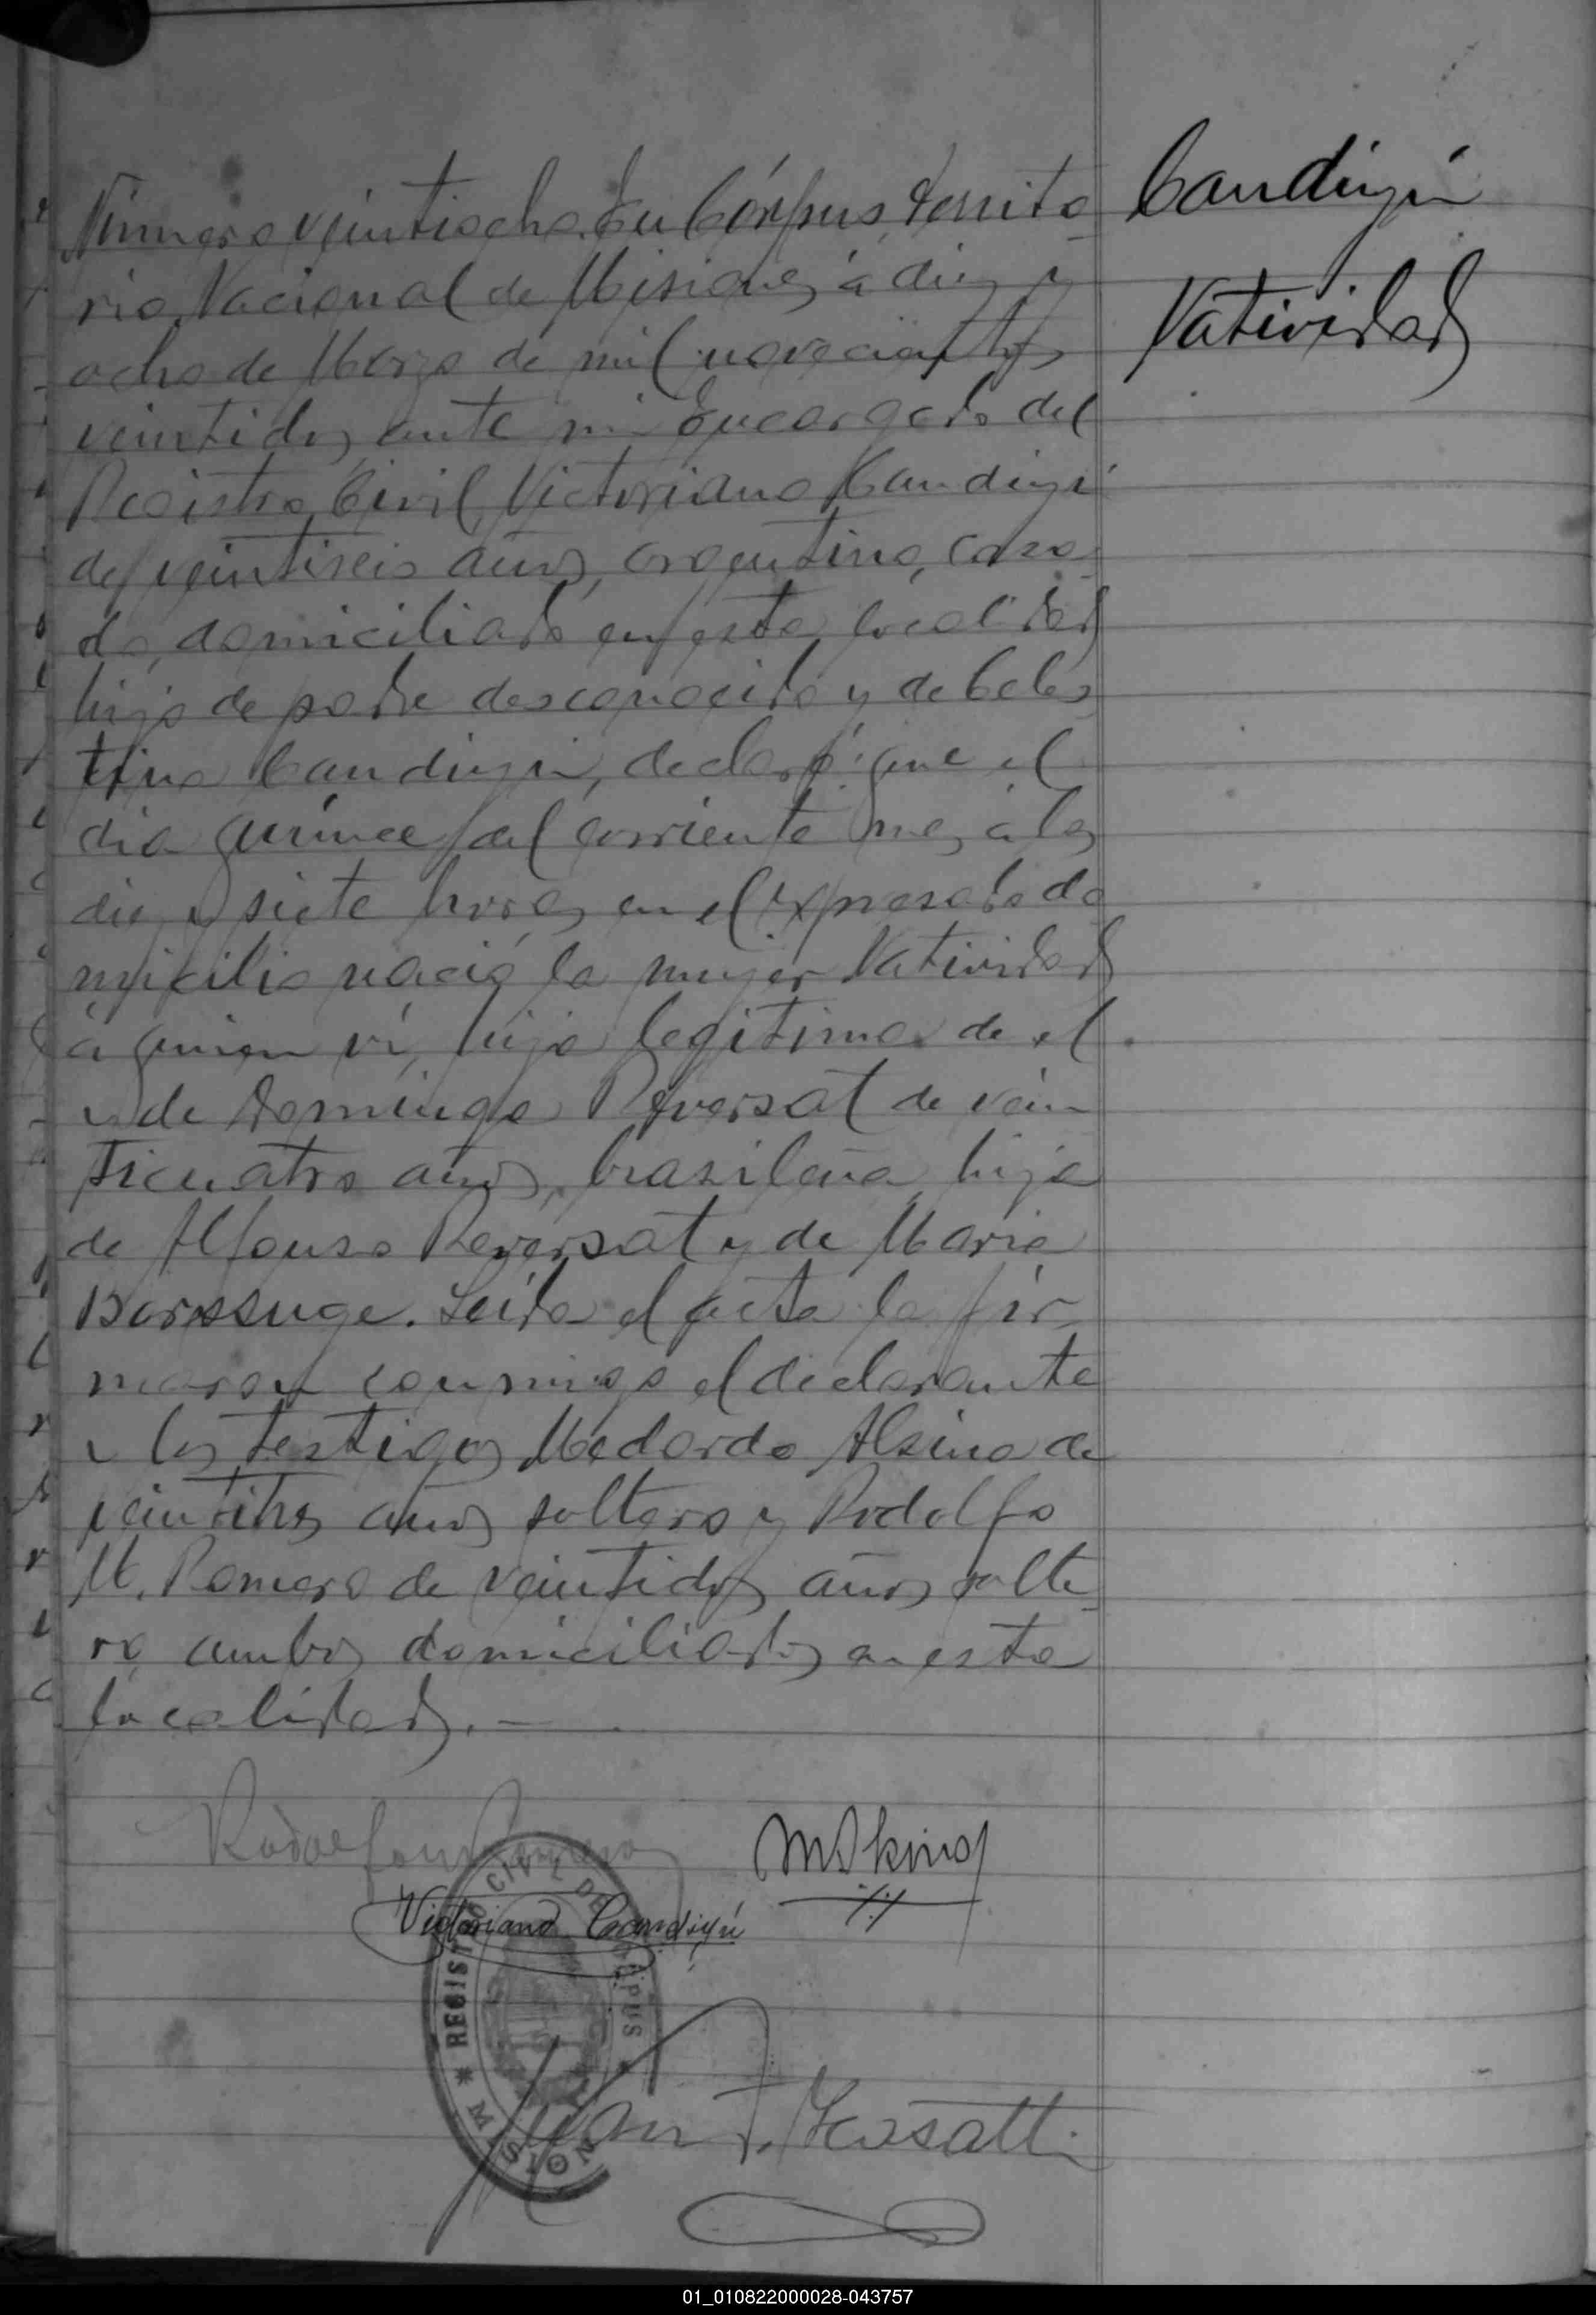 Número veintiocho. En Córpus, Territo
rio Nacional de Misiones, á diez y
ocho de Marzo de mil novecientos
veintidos, ante mi Encargado del
Registro Civil, Victoriano Candiyú
de veintiseis años, argentino, casa
do, domiciliado en esta localidad
hijo de padre desconocido y de Celes
tina Candiyú, declaró: que el
dia quince del corriente mes, á las
diez y siete horas, en el expresado do
micilio nació la mujer Natividad
á quien ví, hija legitima de el
y de Dominga Reversat de vein
ticuatro años, brasileña, hija
de Alfonso Reversat y de Maria
Leida el acta la fir
maron conmigo el declarante
y los testigos Medardo Alsina de
años soltero y Rodolfo
M. Romero de veintidos años solte
ro, ambos domiciliados en esta
localidad. —
Candiyú
Natividad
Rodolfo Romero
MAlsina
Victoriano Candiyú
REGISTRO CIVIL DE CORPUS
* MISIONES *
Juan F.
01_010822000028-043757